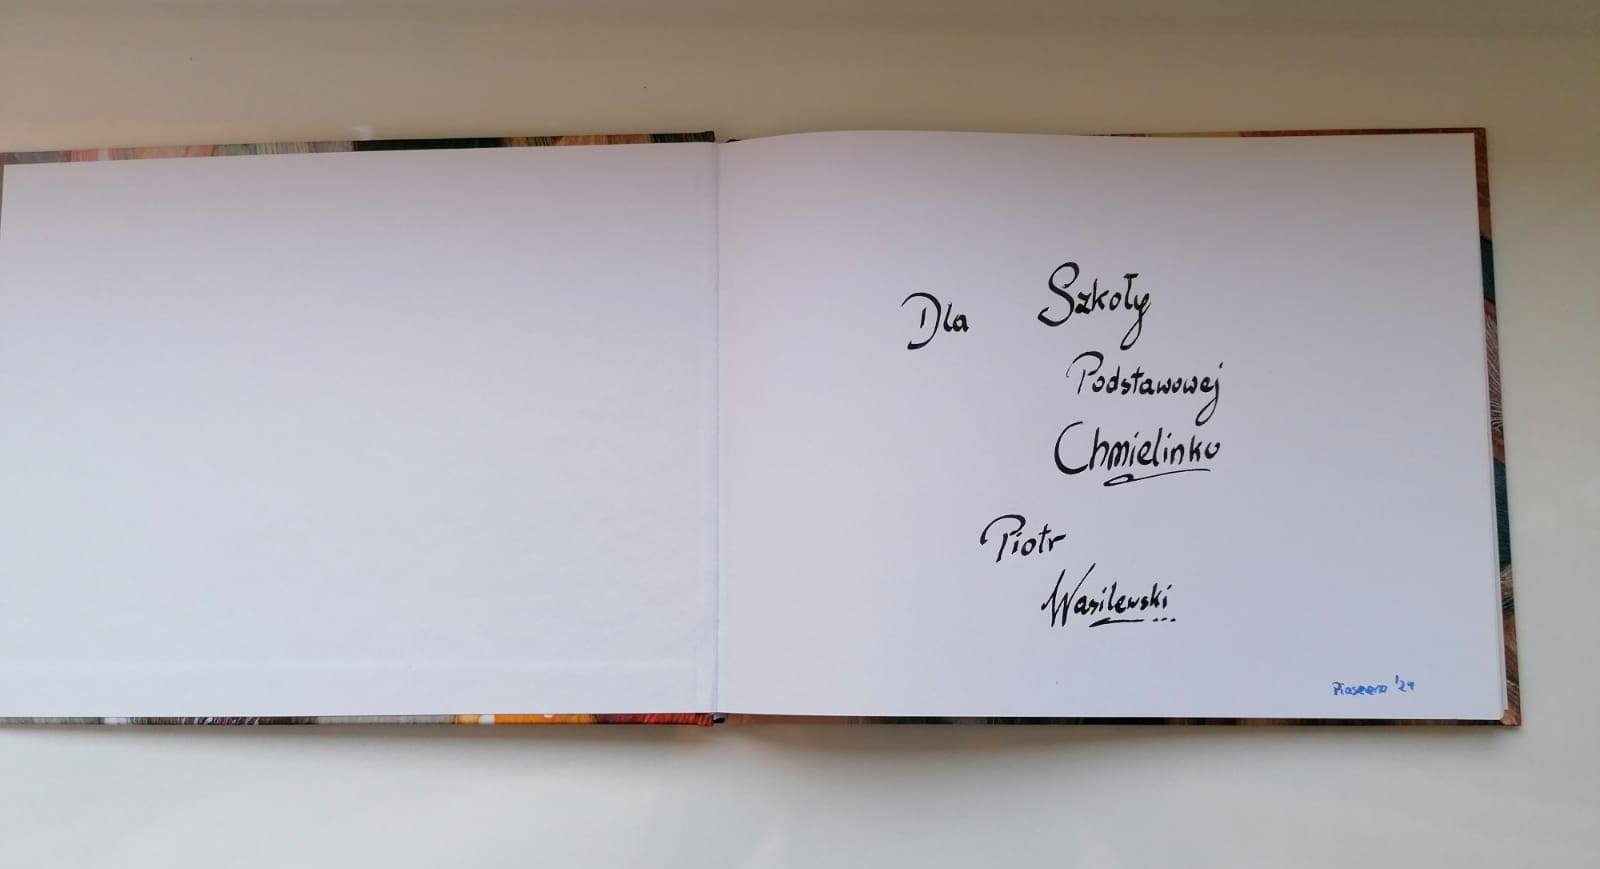 Dla Szkoły
Podstawowej
Chmielinko
Piotr
Wasilewski
'24